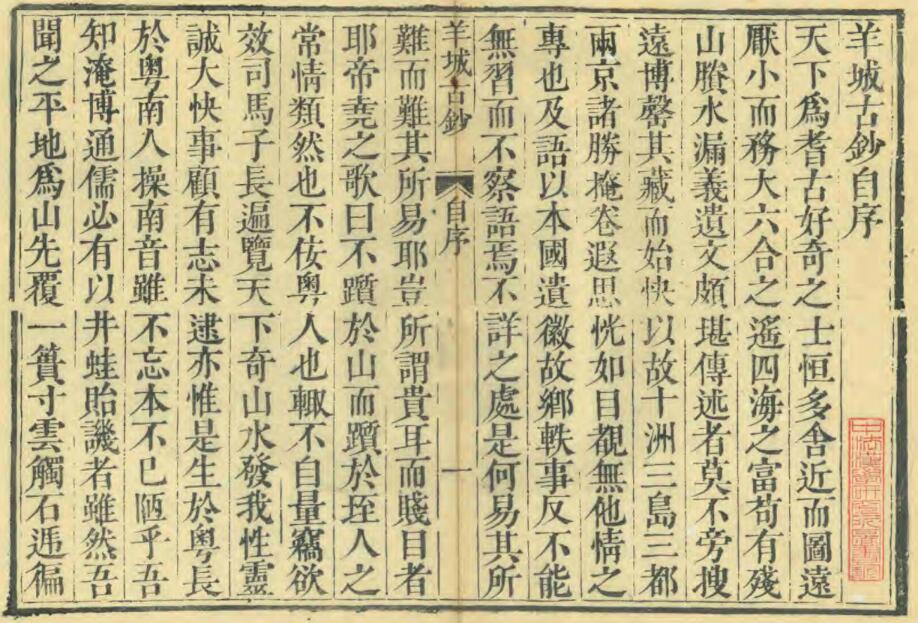 羊城古鈔自序
天下爲耆古好奇之士恒多舍近而圖遠
厭小而務大六合之遙四海之富苟有殘
山賸水漏義遺文頗堪傳述者莫不旁搜
遠博罄其藏而始快以故十洲三島三都
兩京諸勝掩卷遐思恍如目覩無他情之
專也及語以本國遺徽故鄉軼事反不能
無習而不察語焉不詳之處是何易其所
羊城古鈔 自序 一
難而難其所易耶豈所謂貴耳而賤目者
耶帝堯之歌曰不躓於山而躓於垤人之
常情類然也不佞粵人也輙不自量竊欲
效司馬子長遍覽天下奇山水發我性靈
誠大快事顧有志未逮亦惟是生於粵長
於粵南人操南音雖不忘本不已陋乎吾
知淹博通儒必有以井蛙貽譏者雖然吾
聞之平地爲山先覆一簣寸雲觸石遍徧